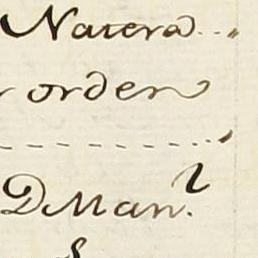 Natera...
orden
D Man.l